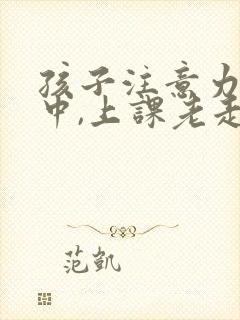 孩子注意力
中,上課老走
范凱